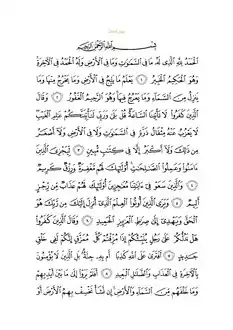 بِسْمِ اللَّهِ الرَّحْمَٰنِ الرَّحِيمِ
الْحَمْدُ لِلَّهِ الَّذِي لَهُ مَا فِي السَّمَاوَاتِ وَمَا فِي الْأَرْضِ وَلَهُ الْحَمْدُ فِي الْآخِرَةِ
وَهُوَ الْحَكِيمُ الْخَبِيرُ ١ يَعْلَمُ مَا يَلِجُ فِي الْأَرْضِ وَمَا يَخْرُجُ مِنْهَا وَمَا
يَنزِلُ مِنَ السَّمَاءِ وَمَا يَعْرُجُ فِيهَا وَهُوَ الرَّحِيمُ الْغَفُورُ ٢ وَقَالَ
الَّذِينَ كَفَرُوا لَا تَأْتِينَا السَّاعَةُ قُلْ بَلَىٰ وَرَبِّي لَتَأْتِيَنَّكُمْ عَالِمِ الْغَيْبِ
لَا يَعْزُبُ عَنْهُ مِثْقَالُ ذَرَّةٍ فِي السَّمَاوَاتِ وَلَا فِي الْأَرْضِ وَلَا أَصْغَرُ
مِن ذَٰلِكَ وَلَا أَكْبَرُ إِلَّا فِي كِتَابٍ مُّبِينٍ ٣ لِّيَجْزِيَ الَّذِينَ
آمَنُوا وَعَمِلُوا الصَّالِحَاتِ أُولَٰئِكَ لَهُم مَّغْفِرَةٌ وَرِزْقٌ كَرِيمٌ
٤ وَالَّذِينَ سَعَوْ فِي آيَاتِنَا مُعَاجِزِينَ أُولَٰئِكَ لَهُمْ عَذَابٌ مِّن رِّجْزٍ
أَلِيمٌ ٥ وَيَرَى الَّذِينَ أُوتُوا الْعِلْمَ الَّذِي أُنزِلَ إِلَيْكَ مِن رَّبِّكَ هُوَ
الْحَقَّ وَيَهْدِي إِلَىٰ صِرَاطِ الْعَزِيزِ الْحَمِيدِ ٦ وَقَالَ الَّذِينَ كَفَرُوا
هَلْ نَدُلُّكُمْ عَلَىٰ رَجُلٍ يُنَبِّئُكُمْ إِذَا مُزِّقْتُمْ كُلَّ مُمَزَّقٍ إِنَّكُمْ لَفِي خَلْقٍ
جَدِيدٍ ٧ أَفْتَرَىٰ عَلَى اللَّهِ كَذِبًا أَم بِهِ جِنَّةٌ بَلِ الَّذِينَ لَا يُؤْمِنُونَ
بِالْآخِرَةِ فِي الْعَذَابِ وَالضَّلَالِ الْبَعِيدِ ٨ أَفَلَمْ يَرَوْا إِلَىٰ مَا بَيْنَ أَيْدِيهِمْ
وَمَا خَلْفَهُم مِّنَ السَّمَاءِ وَالْأَرْضِ إِن نَّشَأْ نَخْسِفْ بِهِمُ الْأَرْضَ أَوْ